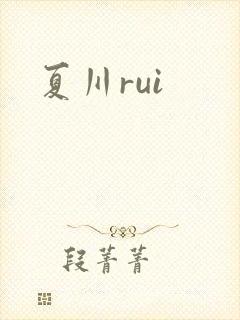 夏川rui
段菁菁